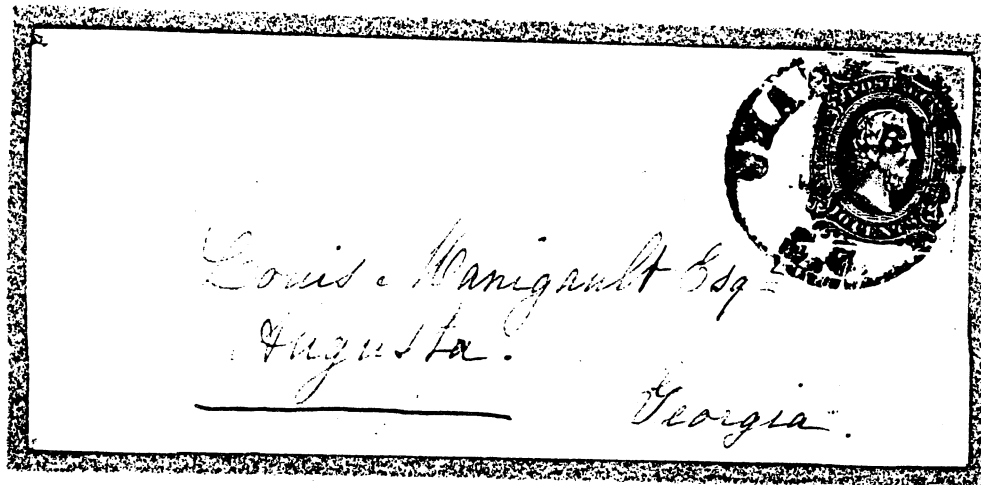 Louis Manigault Esq
Augusta.
Georgia.